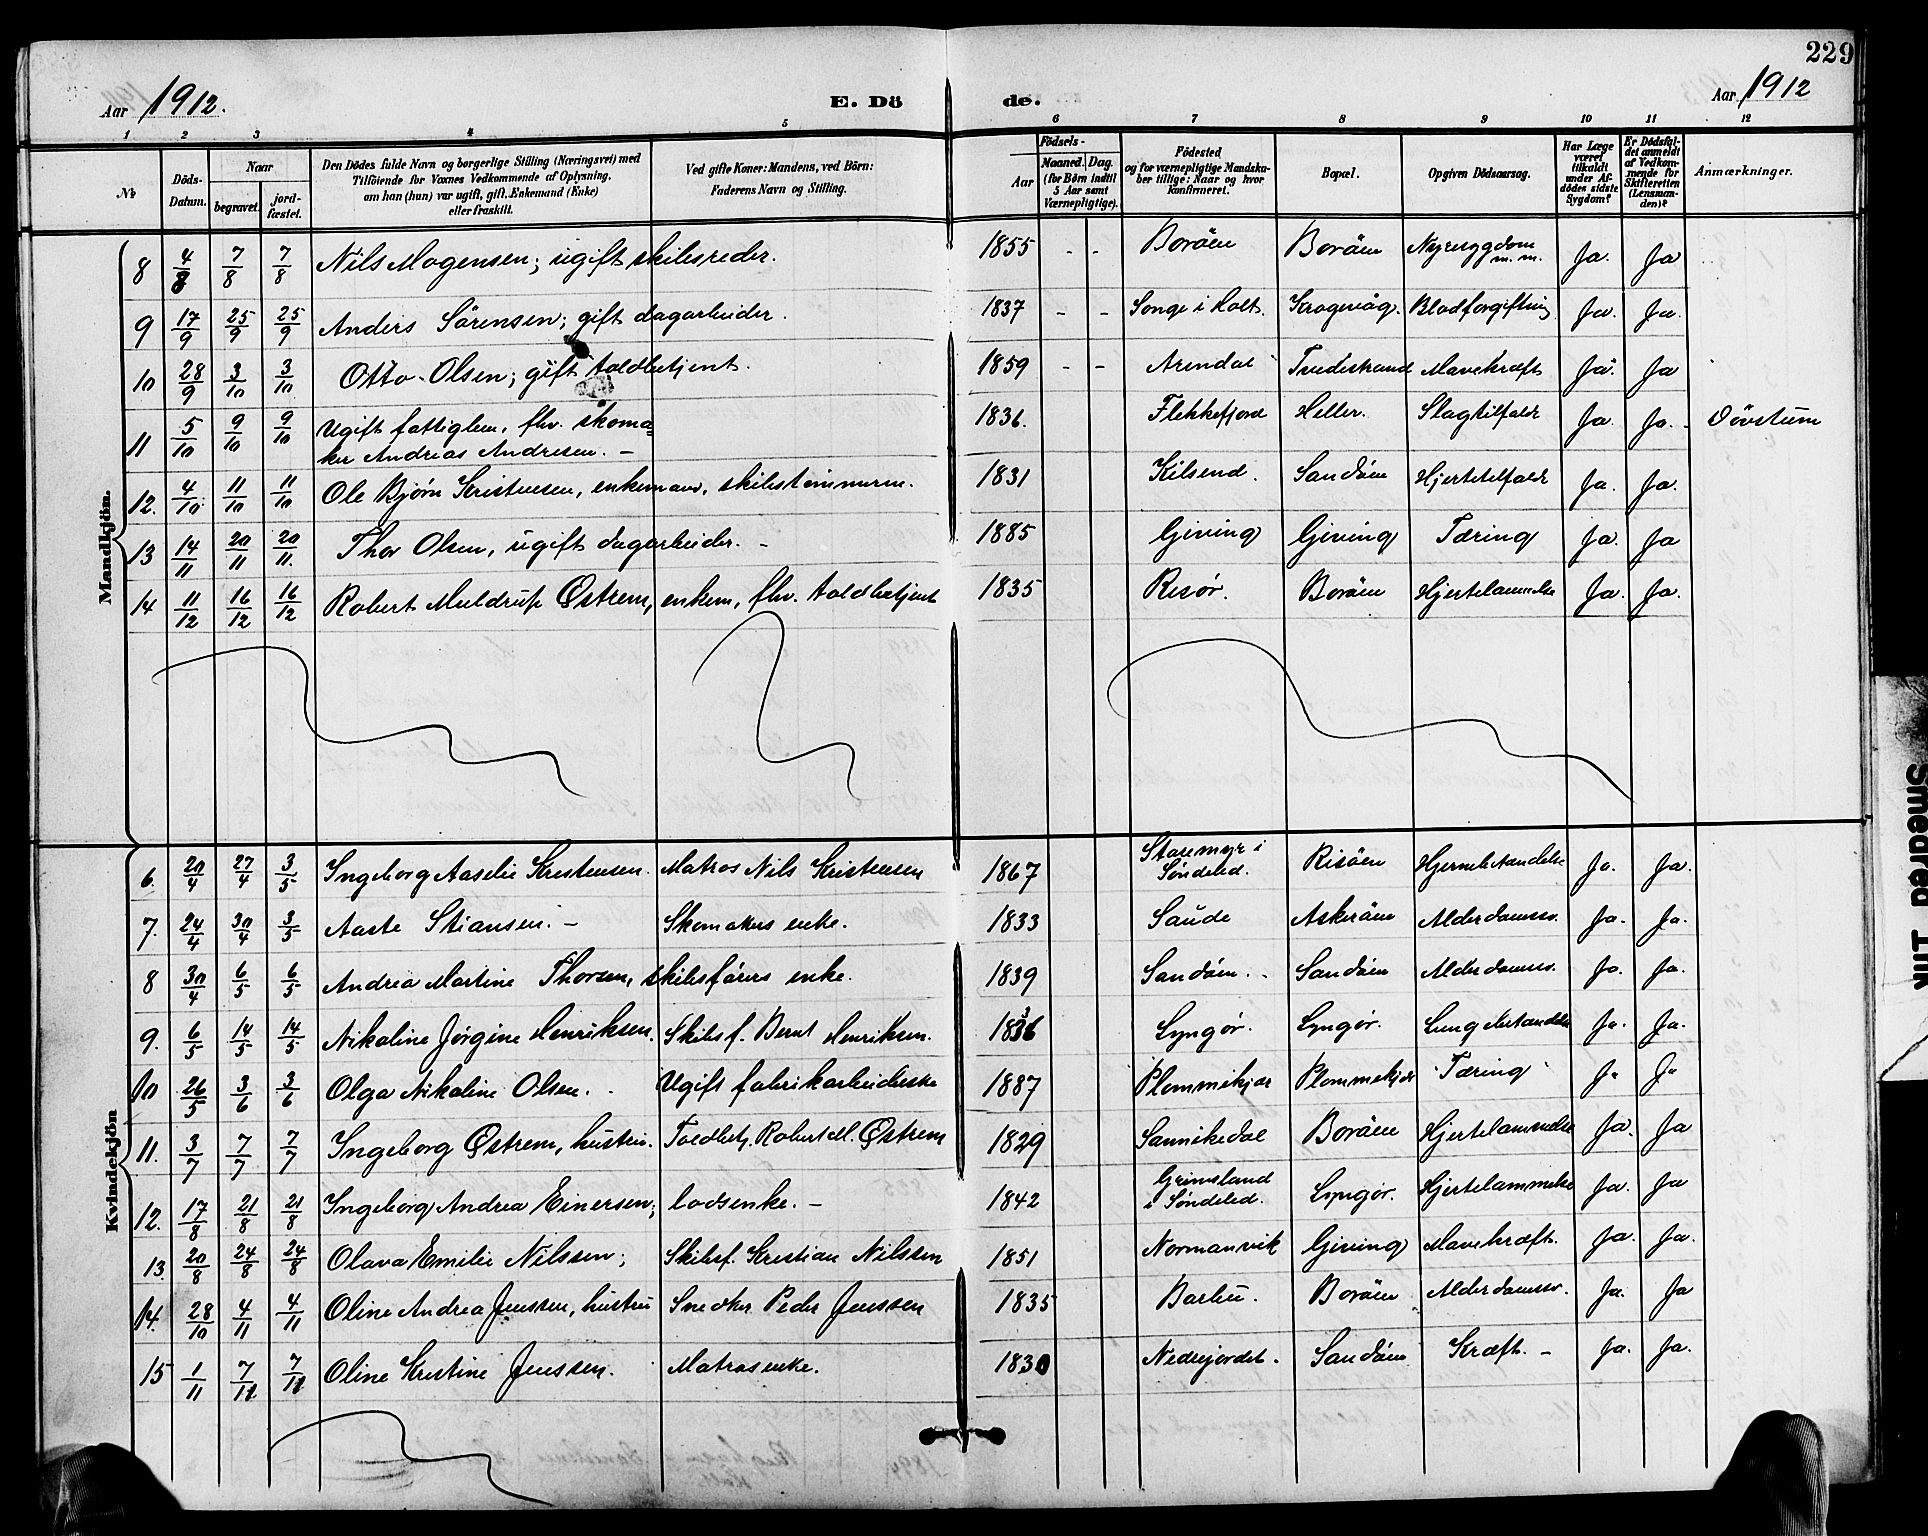 229
Aar 1912. E. Dö de. Aar 1912
1 2 3 4 5 6 7 8 9 10 11 12
No
Döds-Datum.
Naar
begravet.
jord-fæstet.
Den Dödes fulde Navn og borgerlige Stilling (Næringsvei) med
Tilföiende for Voxnes Vedkommende af Oplysning,
om han (hun) var ugift, gift, Enkemand (Enke)
eller fraskilt.
Ved gifte Koner: Mandens, ved Börn:
Faderens Navn og Stilling.
Födsels-
Aar
Maaned. Dag.
(for Börn indtil
5 Aar samt
Værnepligtige).
Födested
og for værnepligtige Mandska-
ber tillige: Naar og hvor
konfirmeret.
Bopæl.
Opgiven Dödsaarsag.
Har Læge
været
tilkaldt
under Af-
dödes sidste
Sygdom?
Er Dödsfal-
det anmeldt
af Vedkom-
mende for
Skifteretten
(Lensman-
den)?
Anmærkninger.
Mandkjön.
8 4/8 7/8 7/8 Nils Mogensen; ugift skibsreder. 1855 - - Boröen Boröen Nyresygdom m. m. Ja. Ja
9 17/9 25/9 25/9 Anders Sörensen; gift dagarbeider. 1837 - - Songe i Holt. Krogevåg. Blodforgiftning Ja. Ja.
10 28/9 3/10 3/10 Otto Olsen; gift toldbetjent. 1859 - - Arendal Tvedestrand Mavekræft Ja. Ja
11 5/10 9/10 9/10 Ugift fattiglem, fhv. skoma=
ker Andreas Andresen. - 1836. Flekkefjord Heller. Slagtilfælde Ja. Ja. Dövstum
12. 4/10 11/10 11/10 Ole Bjørn Kristensen, enkemand, skibstömmerm. 1831 Kilsend. Sandöen Hjertetilfælde Ja. Ja.
13 14/11 20/11 20/11. Thor Olsen, ugift dagarbeider. - 1885 Giving Giving Tæring Ja. Ja
14 11/12 16/12 16/12 Robert Muldrup Østrem, enkem, fhv. toldbetjent 1835 Risør. Boröen Hjertelammelse Ja. Ja.
Kvindekjön
6. 20/4 27/4 3/5 Ingeborg Aaselie Kristensen. Matros Nils Kristensen 1867 Staremyr i
Søndeled. Risöen Hjernebetændelse Ja. Ja.
7. 24/4 30/4 3/5 Aaste Stiansen. - Skomakers enke. 1833 Saude Askeröen Alderdomssv. Ja. Ja.
8 30/4 6/5 6/5 Andrea Martine Thorsen, skibsförers enke. 1839 Sandöen. - Sandöen Alderdomssv. Ja. Ja.
9. 6/5 14/5 14/5 Nikoline Jörgine Henriksen. Skibsf. Bernt Henriksen. 1836 Lyngør. Lyngør. Lungebetændelse Ja. Ja.
10 26/5 3/6 3/6 Olga Nikoline Olsen. Ugift fabrikarbeiderske 1887 Plommekjær Plommekjær Tæring Ja Ja
11. 3/7 7/7 7/7 Ingeborg Østrem, hustru. Toldbetj. Robert M. Østrem 1829 Sannikedal Boröen Hjertelammelse Ja. Ja
12. 17/8 21/8 21/8 Ingeborg Andrea Einersen; lodsenke. - 1842 Grimsland
i Søndeled. Lyngør. Hjertelammelse Ja. Ja
13 20/8 24/8 24/8 Olava Emilie Nilssen; Skibsf. Kristian Nilssen 1851 Normanvik Giving Mavekræft. Ja. Ja.
14. 28/10 4/11 4/11 Oline Andrea Jenssen, hustru Snedker Peder Jenssen 1835 Barbu. Boröen Alderdomssv. Ja. Ja
15 1/11 7/11 7/11 Oline Kristine Jenssen. Matrosenke. 1830 Nedrejordet. Sandöen Kræft. - Ja. Ja.